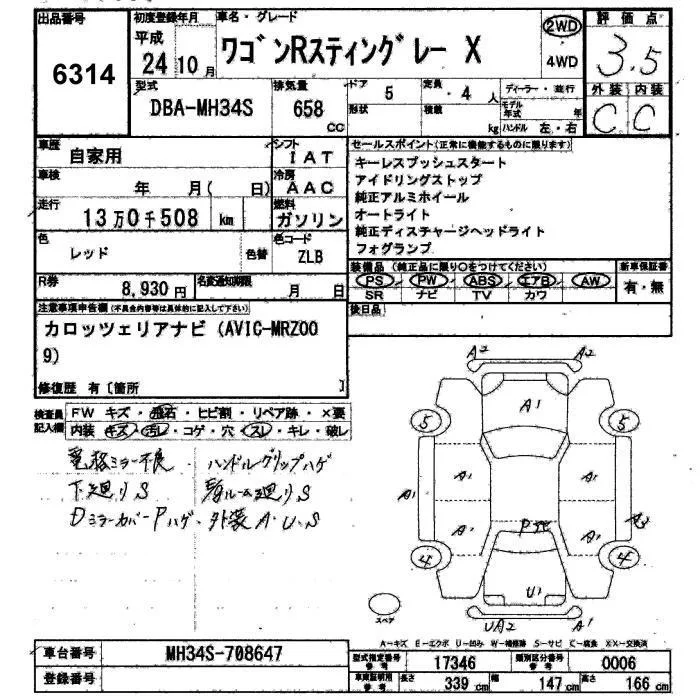 出品番号
6314
初度登録年月
平成
24 10 月
車名・グレード
ワゴンRスティングレー X
2WD
4WD
評価点
3.5
型式
DBA-MH34S
排気量
658
cc
ドア
5
形状
定員
4 人
積載
kg
ディーラー・並行
モデル年式 年
ハンドル 左・右
外装 内装
C C
車歴
自家用
シフト
IAT
車検
年 月( 日)
冷房
AAC
走行
13万0千508 km
燃料
ガソリン
色
レッド
色替
色コード
ZLB
R券
8,930円
名変通知期限
月 日
セールスポイント(正常に機能するものに限ります)
キーレスプッシュスタート
アイドリングストップ
純正アルミホイール
オートライト
純正ディスチャージヘッドライト
フォグランプ
装備品 (純正品に限り○をつけてください)
PS PW ABS エアB AW
SR ナビ TV カワ
新車保証書
有・無
後日品
注意事項申告欄(不具合内容等は具体的に記入して下さい)
カロッツェリアナビ(AVIC-MRZ00
9)
修復歴 有〔箇所 〕
検査員
記入欄
FW キズ・飛石・ヒビ割・リペア跡・×要
内装 キズ・汚レ・コゲ・穴・スレ・キレ・破レ
電格ミラー不良 ・ハンドルグリップハゲ
下廻りS
ルーム廻りS
DミラーカバーPハゲ・外装A・U・S
A2 A2
A1
5 5
A1 A1 A1
A1 A1
4 4
U1
UA2 A1
スペア
A-キズ E-エクボ U-凹み W-補修跡 S-サビ C-腐食 XX-交換済
車台番号
MH34S-708647
登録番号
型式指定番号
参考
17346
類別区分番号
参考
0006
車庫証明用
参考
長さ 339 cm 幅 147 cm 高さ 166 cm